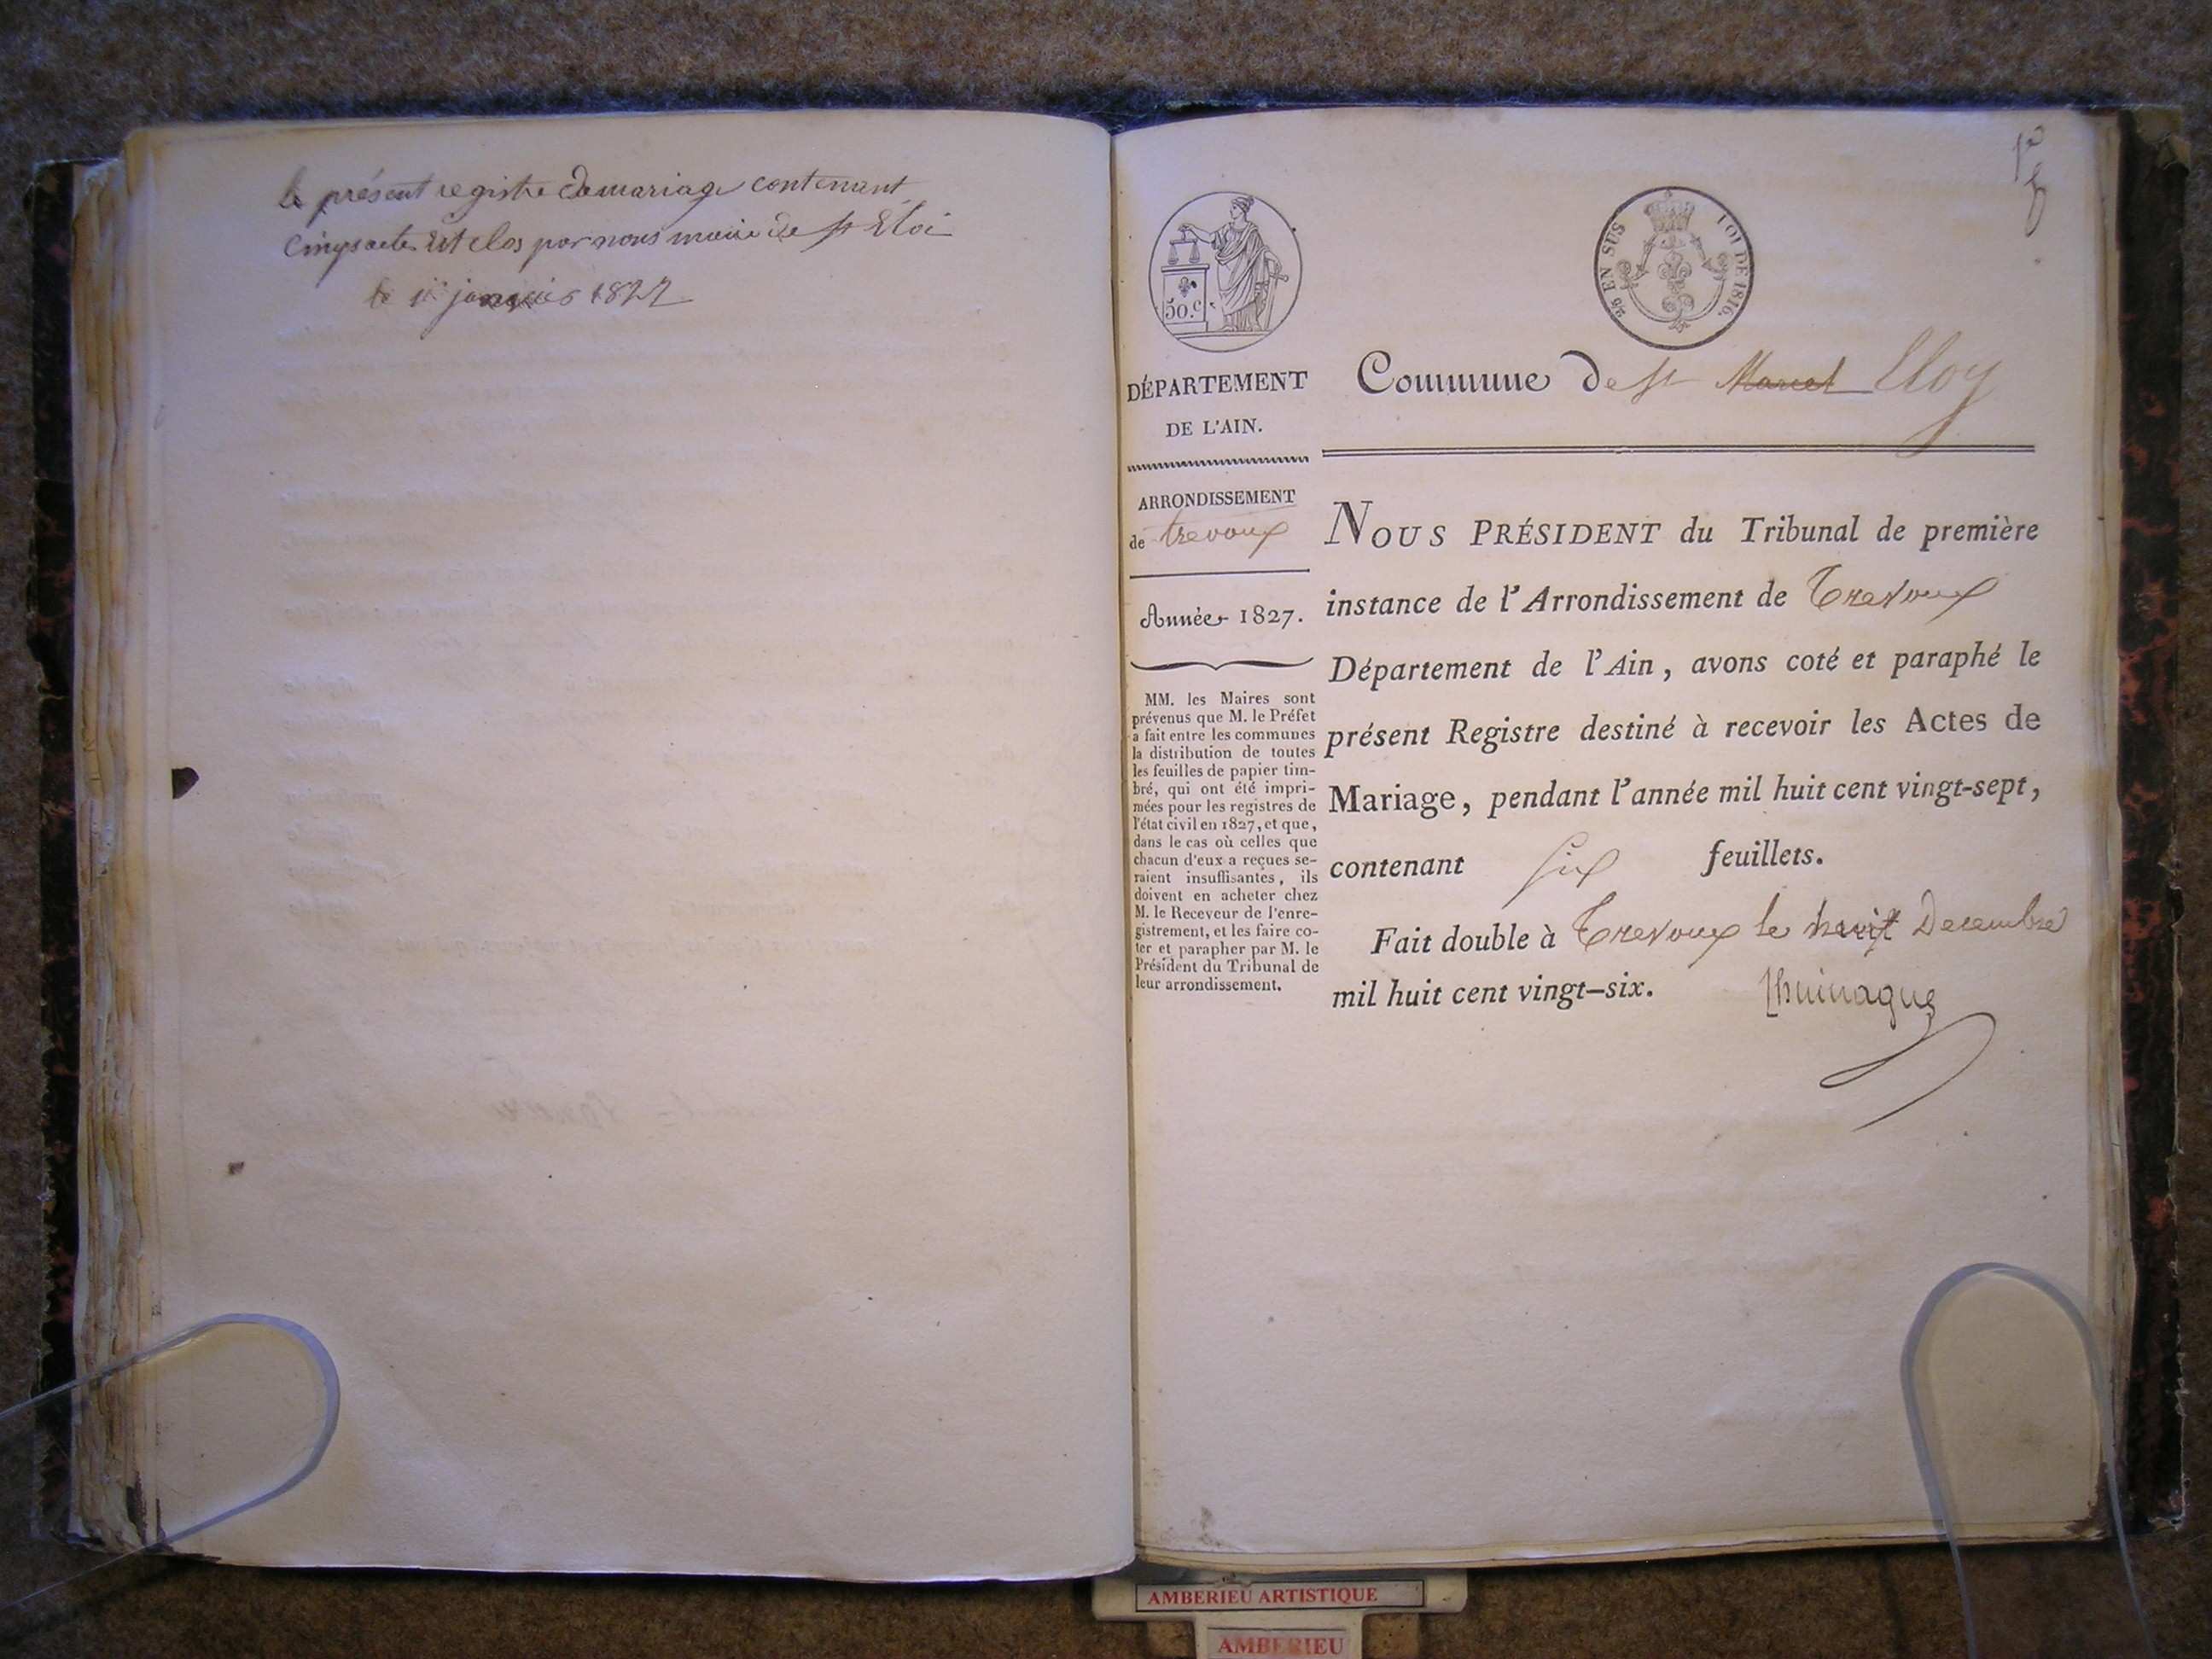 le présent registre de mariage contenant
cinq acte est clos par nous maire de st Eloi
le 1er janvier 1827
50.c
2/5 EN SUS
LOI DE 1816.
DÉPARTEMENT
DE L'AIN.
ARRONDISSEMENT
de trevoux
Année 1827.
MM. les Maires sont
prévenus que M. le Préfet
a fait entre les communes
la distribution de toutes
les feuilles de papier tim-
bré, qui ont été impri-
mées pour les registres de
l'état civil en 1827, et que,
dans le cas où celles que
chacun d'eux a reçues se-
raient insuffisantes, ils
doivent en acheter chez
M. le Receveur de l'enre-
gistrement, et les faire co-
ter et parapher par M. le
Président du Tribunal de
leur arrondissement.
Commune de st Marcel Eloy
NOUS PRÉSIDENT du Tribunal de première
instance de l'Arrondissement de Trevoux
Département de l'Ain, avons coté et paraphé le
présent Registre destiné à recevoir les Actes de
Mariage, pendant l'année mil huit cent vingt-sept,
contenant six feuillets.
Fait double à Trevoux le huit Decembre
mil huit cent vingt-six.
AMBERIEU ARTISTIQUE
AMBERIEU